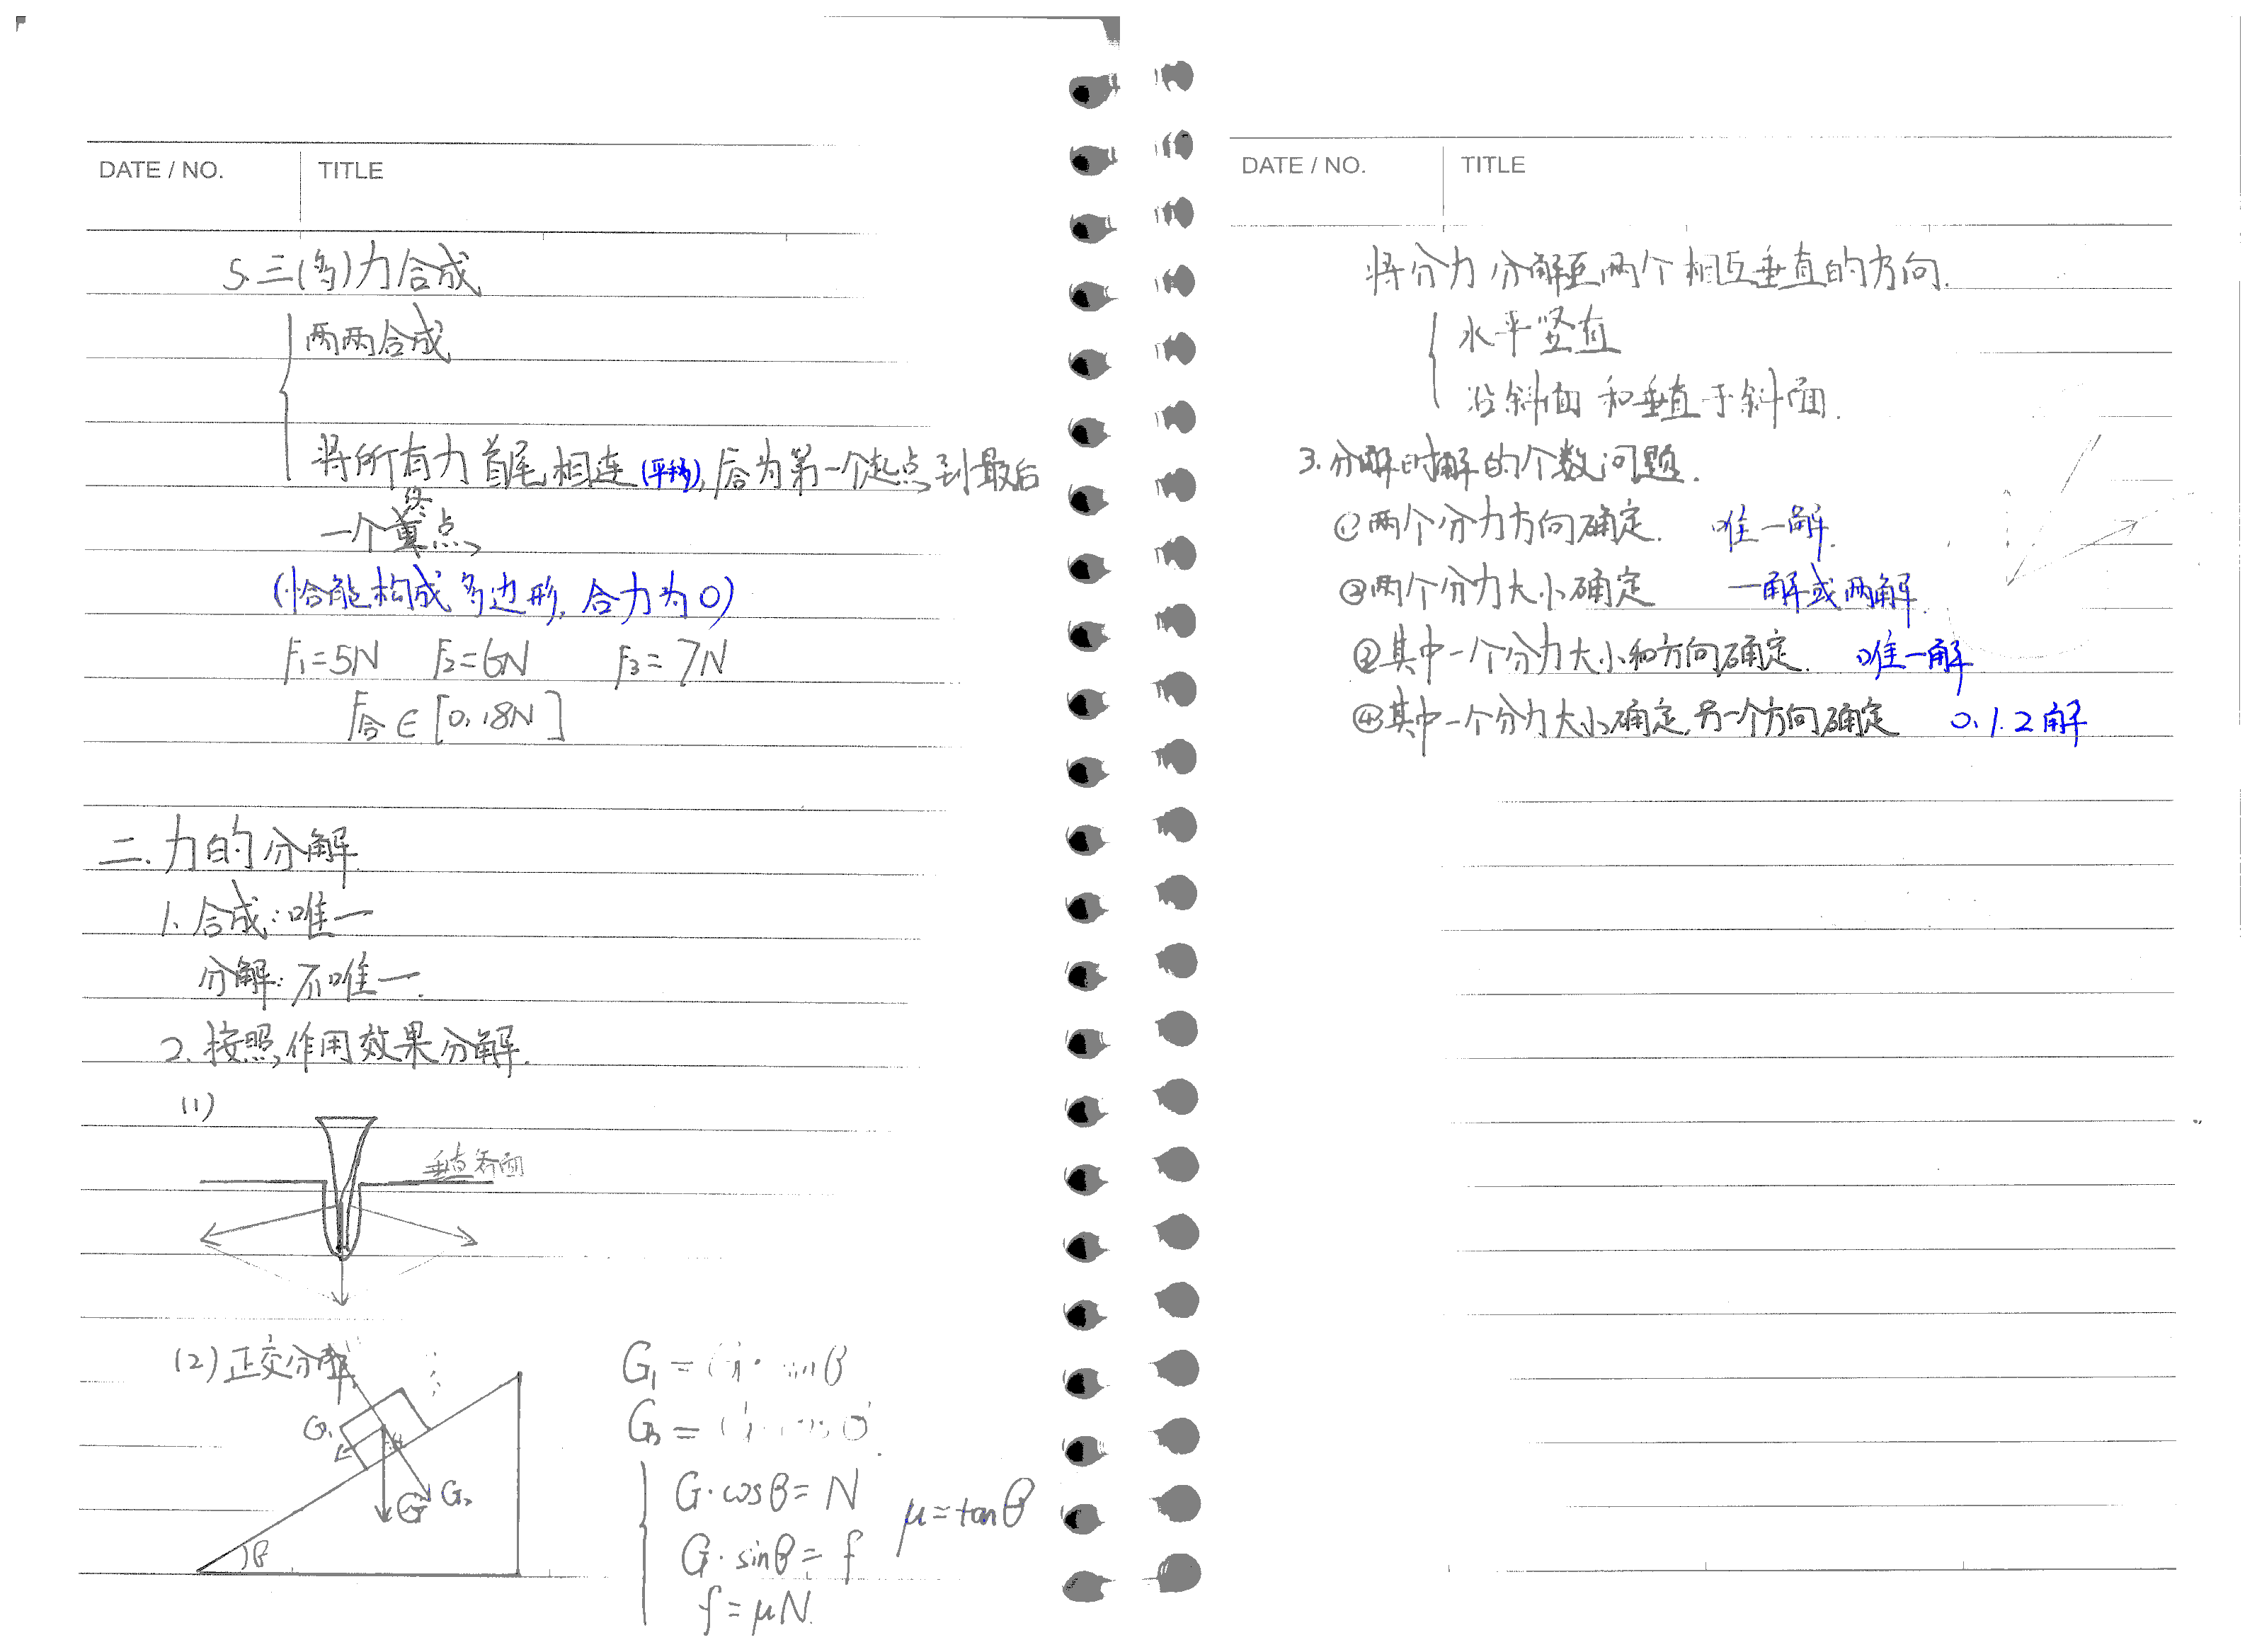 DATE / NO.
TITLE
5.三(多)力合成
两两合成
将所有力首尾相连(平移),F合为第一个起点到最后
一个终点
(恰能构成多边形,合力为0)
F₁=5N F₂=6N F₃=7N
F合∈[0,18N]
二.力的分解
1.合成:唯一
分解:不唯一.
2.按照作用效果分解.
(1)
垂直斜面
(2)正交分解
G₁
G
G₂
θ
G₁=G·sinθ
G₂=G·cosθ.
G·cosθ=N
G·sinθ=f
f=μN.
μ=tanθ
DATE / NO.
TITLE
将分力分解至两个相互垂直的方向.
水平竖直
沿斜面和垂直于斜面.
3.分解时解的个数问题.
①两个分力方向确定. 唯一解.
②两个分力大小确定 一解或两解.
②其中一个分力大小和方向确定. 唯一解
④其中一个分力大小确定,另一个方向确定 0.1.2解